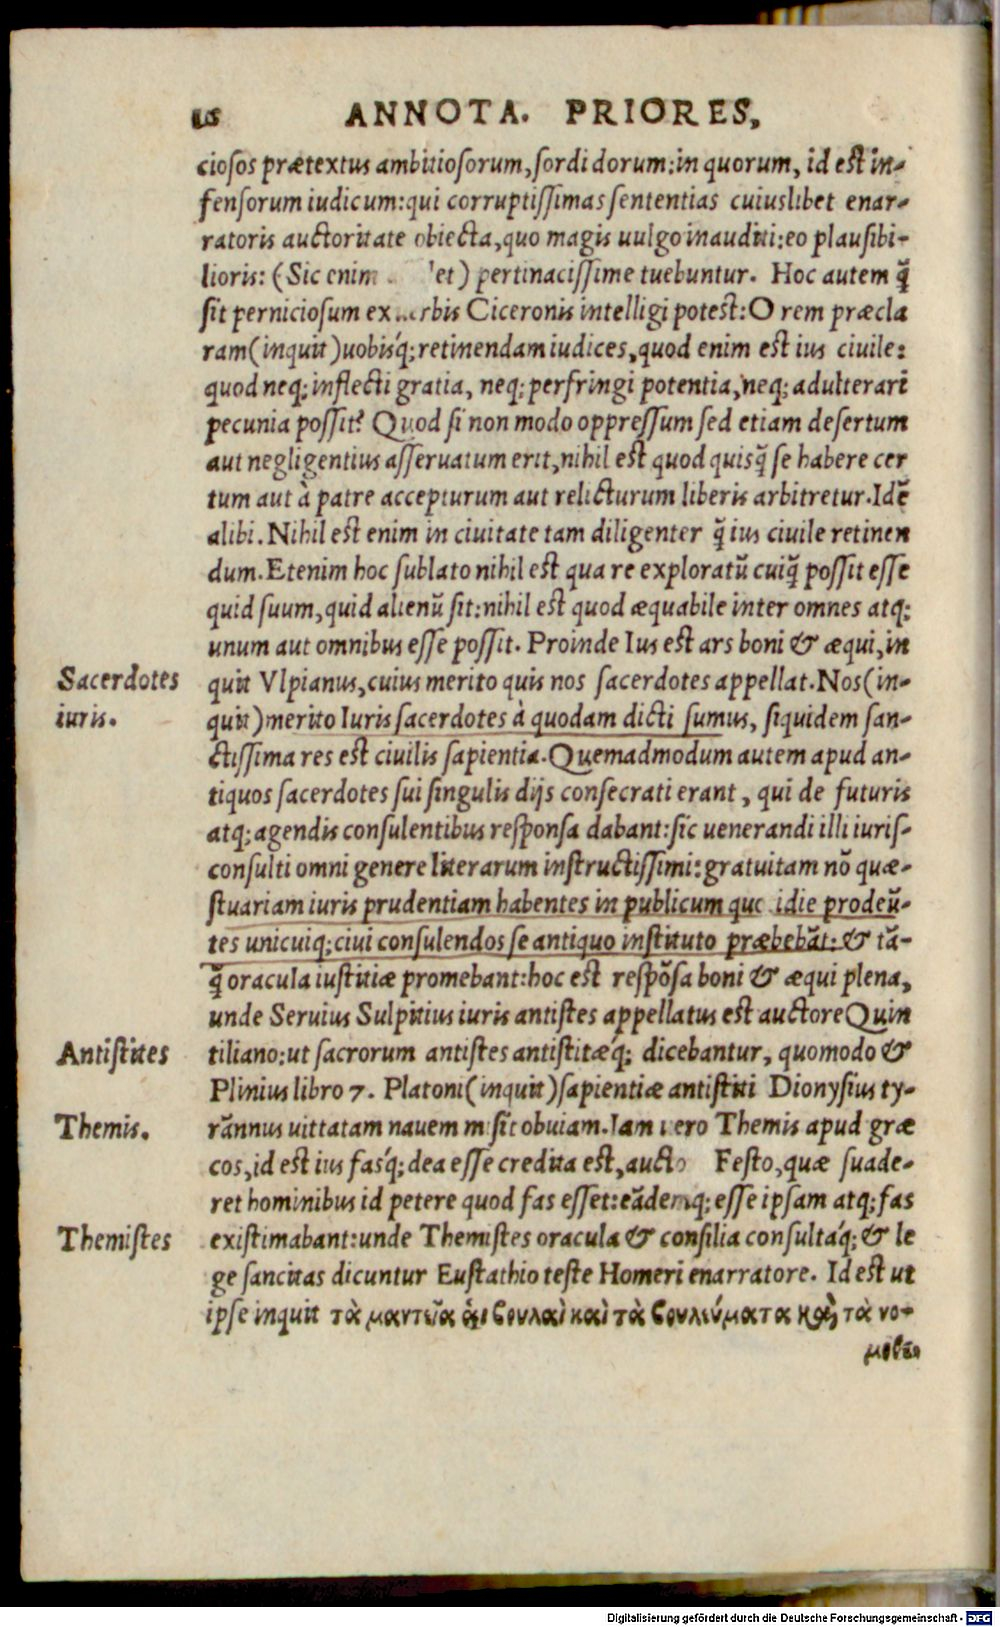 ANNOTA. PRIORES,
ciosos prætextus ambitiosorum, sordidorum: iniquorum, id est in-
fensorum iudicum: qui corruptissimas sententias cuiuslibet enar-
ratoris auctoritate obiecta, quo magis uulgo inauditi: eo plausibi-
lioris: (Sic enim et) pertinacissime tuebuntur. Hoc autem q̃
sit perniciosum ex Ciceronis intelligi potest: O rem præcla
ram (inquit) uobisq́; retinendam iudices, quod enim est ius ciuile:
quod neq; inflecti gratia, neq; perfringi potentia, neq; adulterari
pecunia possit? Quod si non modo oppressum sed etiam desertum
aut negligentius asseruatum erit, nihil est quod quisq̃ se habere cer
tum aut à patre accepturum aut relicturum liberis arbitretur. Idẽ
alibi. Nihil est enim in ciuitate tam diligenter q̃ ius ciuile retinen
dum. Etenim hoc sublato nihil est qua re exploratũ cuiq̃ possit esse
quid suum, quid alienũ sit: nihil est quod æquabile inter omnes atq;
unum aut omnibus esse possit. Proinde Ius est ars boni & æqui, in
Sacerdotes
quit Vlpianus, cuius merito quis nos sacerdotes appellat. Nos (in-
iuris.
quit) merito Iuris sacerdotes à quodam dicti sumus, siquidem san-
ctissima res est ciuilis sapientia. Quemadmodum autem apud an-
tiquos sacerdotes sui singulis dijs consecrati erant, qui de futuris
atq; agendis consulentibus responsa dabant: sic uenerandi illi iuris-
consulti omni genere literarum instructissimi: gratuitam nõ quæ-
stuariam iuris prudentiam habentes in publicum quo idie prodeũ-
tes unicuiq; ciui consulendos se antiquo instituto præbebãt: & tã-
q̃ oracula iustitiæ promebant: hoc est respõsa boni & æqui plena,
unde Seruius Sulpitius iuris antistes appellatus est auctore Quin
Antistites
tiliano: ut sacrorum antistes antistitæq́; dicebantur, quomodo &
Plinius libro 7. Platoni (inquit) sapientiæ antistiti Dionysius ty-
Themis.
rãnnus uittatam nauem misit obuiam. Iam uero Themis apud græ
cos, id est ius fasq́; dea esse credita est, aucto Festo, quæ suade-
ret hominibus id petere quod fas esset: eãdemq; esse ipsam atq; fas
Themistes
existimabant: unde Themistes oracula & consilia consultaq́; & le
ge sancitas dicuntur Eustathio teste Homeri enarratore. Id est ut
ipse inquit τὰ μαντεῖα αἱ βουλαὶ καὶ τὰ βουλεύματα καὶ τὰ νο-
Digitalisierung gefördert durch die Deutsche Forschungsgemeinschaft - DFG